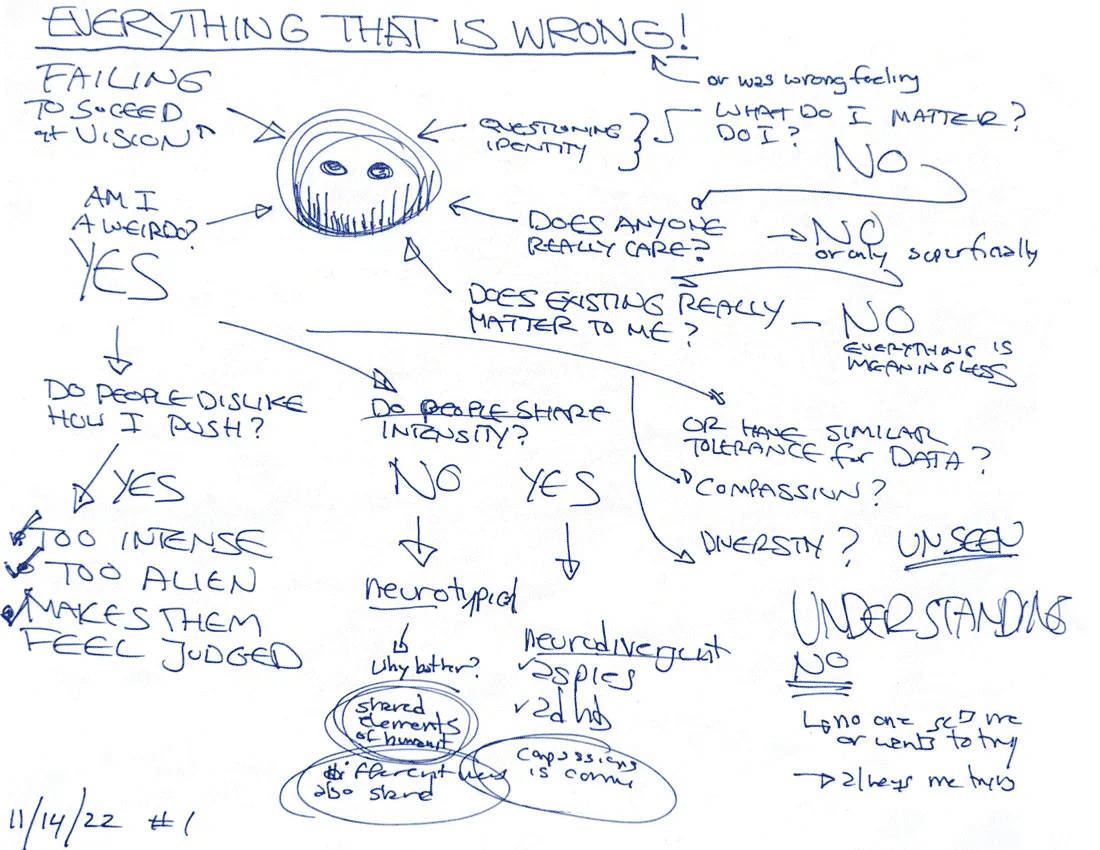 EVERYTHING THAT IS WRONG!
or was wrong feeling
FAILING
TO SUCCEED
at VISION
QUESTIONING
IDENTITY
WHAT DO I MATTER?
DO I?
NO
AM I
A WEIRDO?
YES
DOES ANYONE
REALLY CARE?
NO
or only superficially
DOES EXISTING REALLY
MATTER TO ME?
NO
EVERYTHING IS
MEANINGLESS
DO PEOPLE DISLIKE
HOW I PUSH?
YES
TOO INTENSE
TOO ALIEN
MAKES THEM
FEEL JUDGED
DO PEOPLE SHARE
INTENSITY?
NO
YES
OR HAVE SIMILAR
TOLERANCE for DATA?
COMPASSION?
DIVERSTY?
UNSEEN
neurotypical
why bother?
shared
elements
of
different
also shared
neurodivergent
aspies
adhd
is
UNDERSTANDING
NO
no one me
or wants to try
always me trying
11/14/22 #1